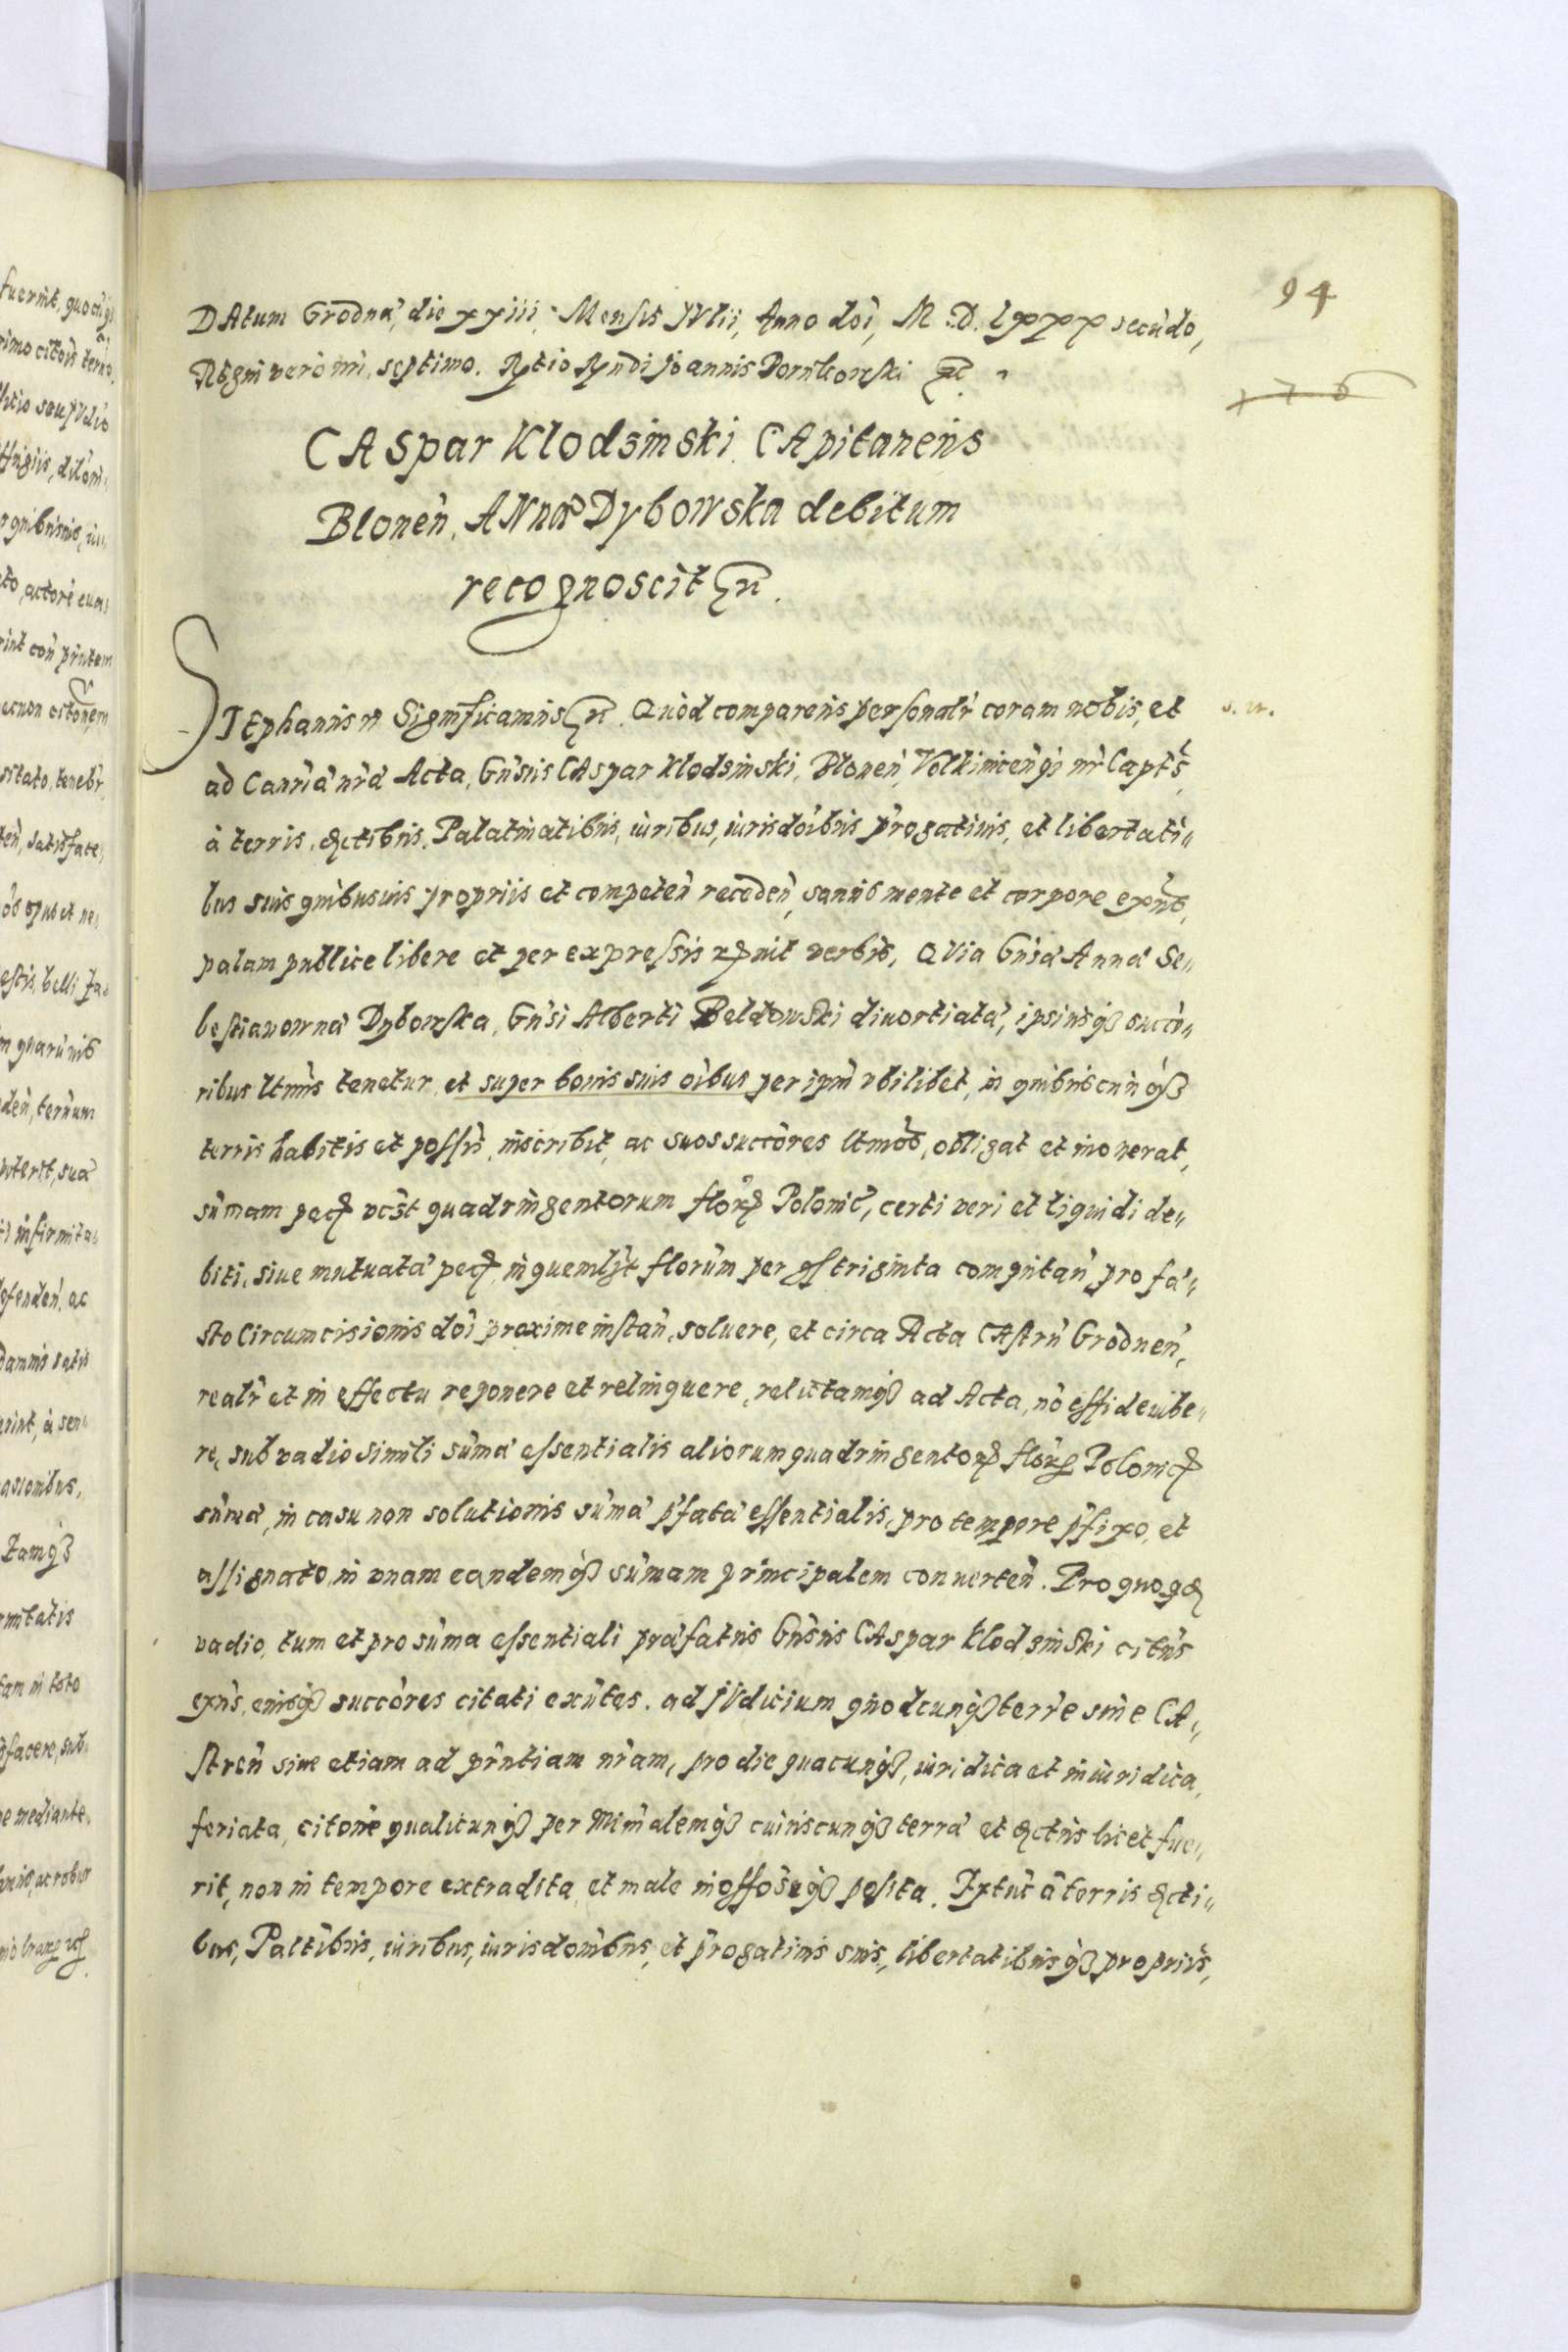 94
DAtum Grodnæ, die xxiii, Mensis IVlii, Anno doi, M. D. lxxx secūdo,
Regni vero nri, septimo. Rtio Rndi Joannis Borukowski etc
176
CAspar Klodzinski CApitaneus
Blonen̄, ANnæ Dybowska debitum
recognoscit etc.
STEphanus etc Significamus etc. Quod comparens personalr̄ coram nobis, et
ad Canrīæ nr̄æ Acta, Gn̄sus CAspar Klodzinski, Blonen̄, Volkinicen̄q̄ nr̄ Capts,
à terris, dictibus, Palatinatibus, iuribus, iurisdōibus prōgatiuis, et libertati„
bus suis quibusuis propriis et competen̄ receden̄, sanus mente et corpore exn̄s,
palam publice libere et per expressis recognouit verbis, QVia Gn̄sæ Annæ Se„
bestianownæ Dybowska, Gn̄si Alberti Beldowski diuortiatæ, ipsiusq3 succo„
ribus ltmis tenetur, et super bonis suis oībus per ipm̄ vbilibet, in quibuscunq3
terris habitis et possis, inscribit, ac suos succōres ltmos, obligat et inonerat,
sūmam pec vcz̄t quadringentorum flor Polonic, certi veri et liquidi de„
biti, siue mutuatæ pec, in quemlbt florūm per gs triginta computan̄, pro fæ„
sto Circumcisionis doī proxime instan̄, soluere, et circa Acta CAstrn̄ Grodnen̄,
realr̄ et in effectu reponere et relinquere, relictamq3 ad Acta, nō effideiube„
re, sub vadio simili sūmæ essentialis aliorum quadringentor flor Polonic
sūma, in casu non solutionis sūmæ p̄fatæ essentialis, pro tempore p̄fixo, et
assignato, in vnam eandemq3 sūmam principalem conuerten̄. Pro quoqd
vadio, tum et pro sūma essentiali præfatus Gn̄sus CAspar Klodzinski citus
exn̄s, eiusq3 succōres citati exn̄tes. ad IVdicium quodcunq3 terre siue CA„
stren̄ siue etiam ad prn̄tiam nr̄am, pro die quacunq3, iuridica et iniuridica,
feriata, citone qualicunq3 per Minālemq3 cuiuscunq3 terræ et dictus licet fue„
rit, non in tempore extradita, et male in offōseq3 posita. Extūc à terris dicti„
bus, Paltibus, iuribus, iurisdonibus, et prōgatiuis suis, libertatibusq3 propriis,